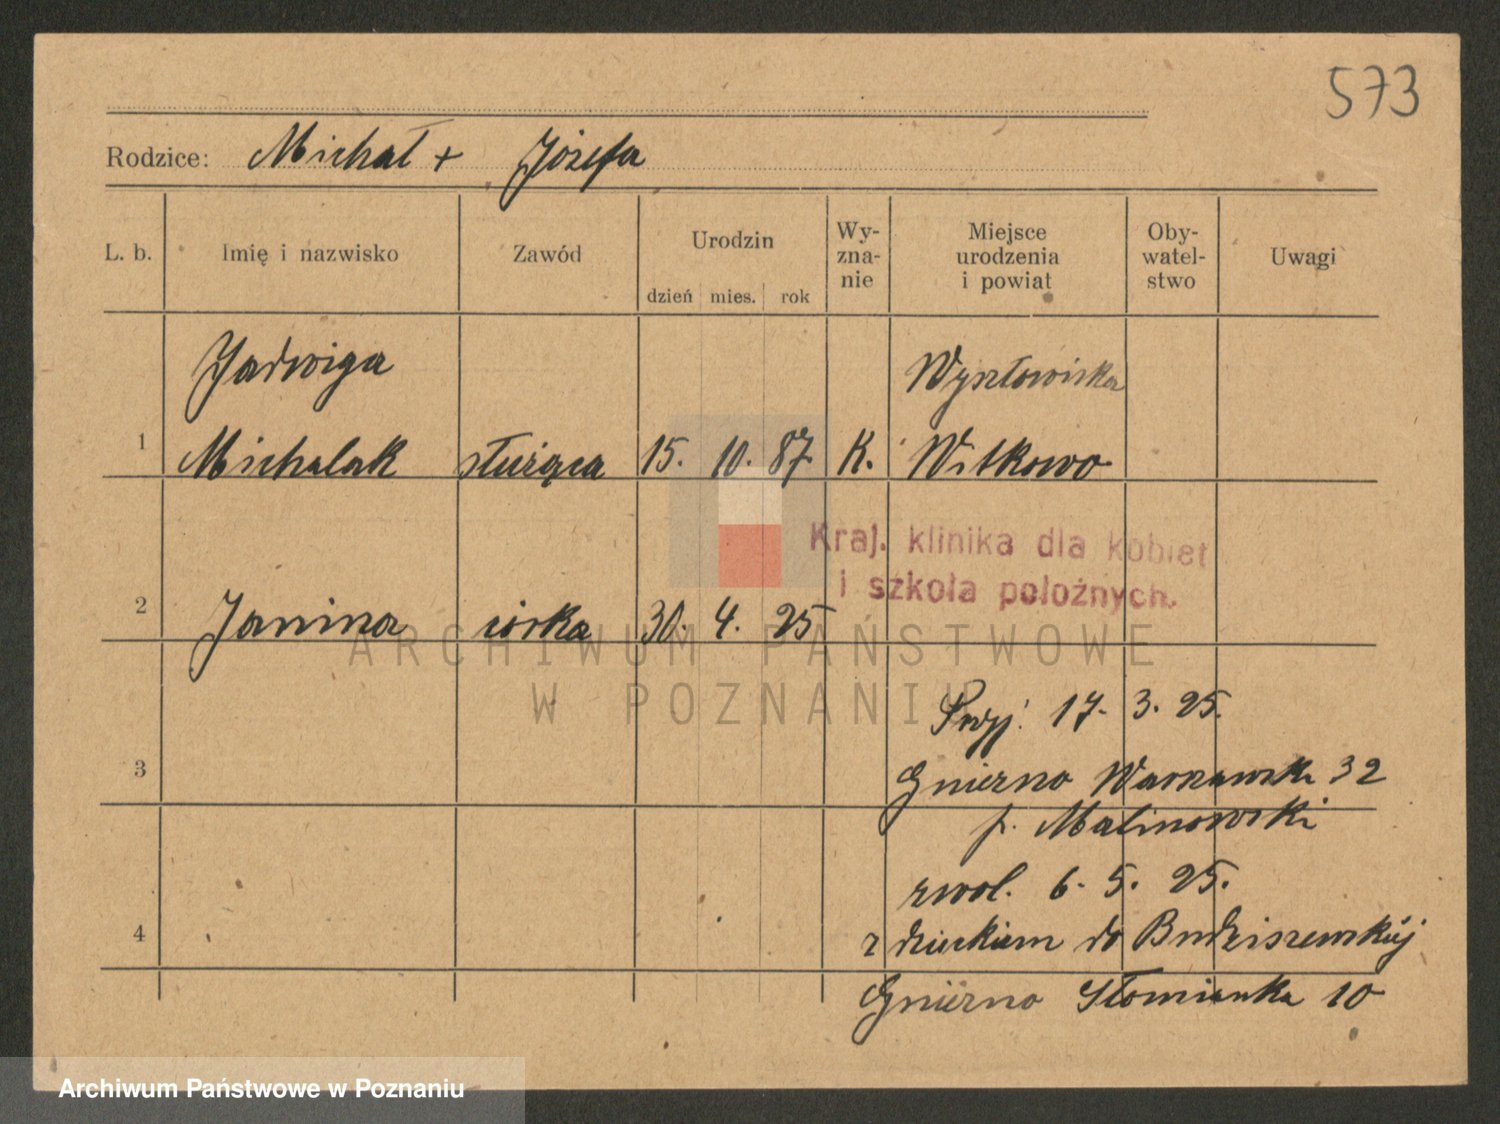 573
Rodzice: Michał + Józefa
L. b. Imię i nazwisko Zawód Urodzin Wy- zna- nie Miejsce urodzenia i powiat Oby- watel- stwo Uwagi
dzień mies. rok
Jadwiga
1 Michalak służąca 15. 10. 87 K. Witkowo
Kraj. klinika dla kobiet
i szkoła położnych.
2 Janina córka 30. 4. 25
ARCHIWUM PAŃSTWOWE
W POZNANIU
Przyj. 17. 3. 25.
3 Gniezno Warszawska 32
p. Malinowski
zwol. 6. 5. 25.
4 z dzieckiem do Budziszewskiej
Gniezno Słomianka 10
Archiwum Państwowe w Poznaniu